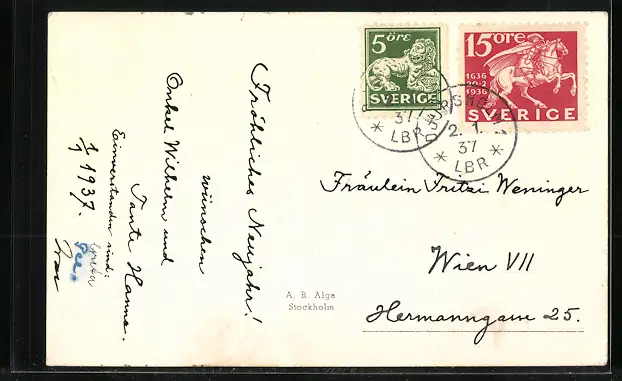 Fröhliches Neujahr!
wünschen
Onkel Wilhelm und
Tante Hanna.
Einverstanden sind:
1/1 1937.
Greta
A. B. Alga
Stockholm
5 öre
SVERIGE
15 öre
1636
20·2
1936
SVERIGE
37
* LBR *
DJURSHOLM 1
2. 1.
37
* LBR *
Fräulein Fritzi Weninger
Wien VII
Hermanngasse 25.